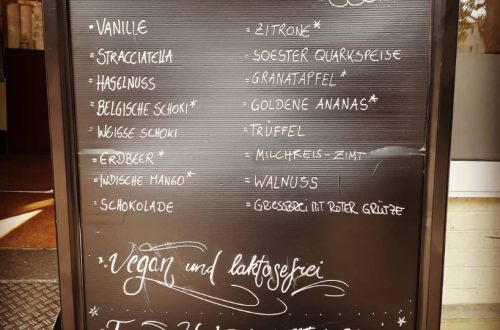 - VANILLE
- STRACCIATELLA
- HASELNUSS
- BELGISCHE SCHOKI*
- WEISSE SCHOKI
- ERDBEER*
- INDISCHE MANGO*
- SCHOKOLADE
- ZITRONE*
- SOESTER QUARKSPEISE
- GRANATAPFEL*
- GOLDENE ANANAS*
- TRÜFFEL
- MILCHREIS-ZIMT
- WALNUSS
- GRIESSBREI MIT ROTER GRÜTZE
*. Vegan und laktosefrei